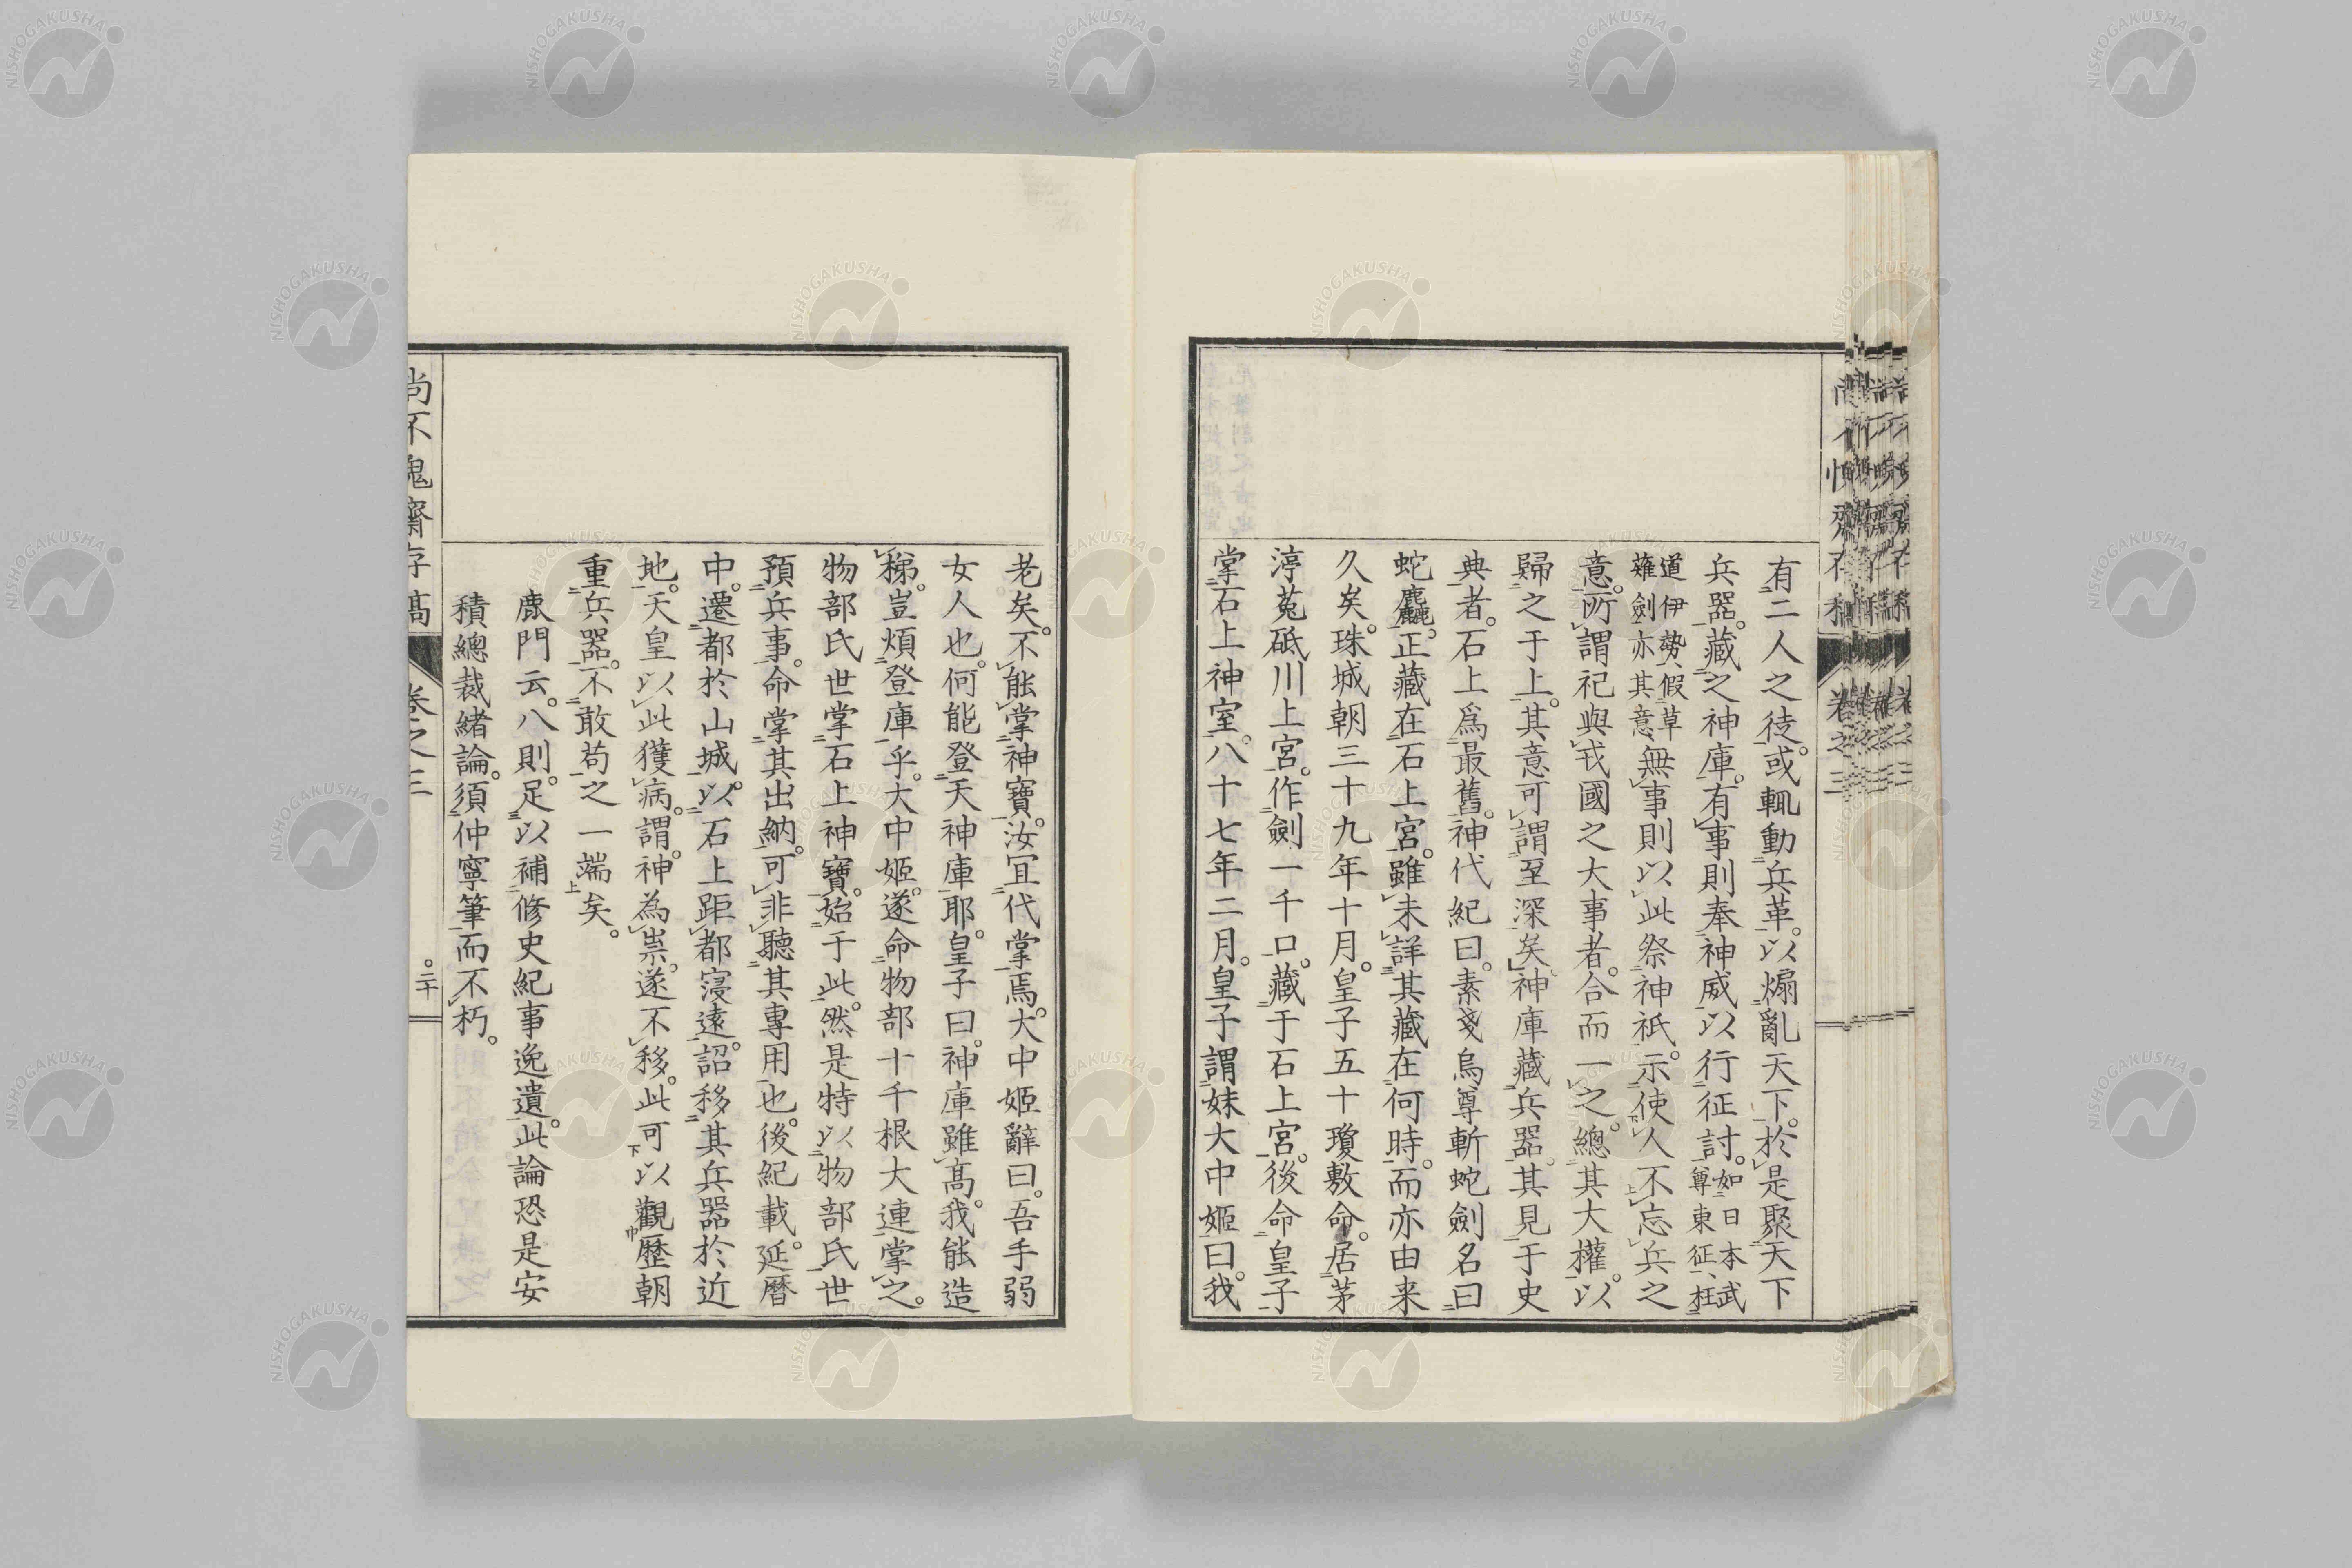 有二人之徒。或輒動兵革。以煽亂天下。於是聚天下
兵器。藏之神庫。有事則奉神威以行征討。如日本武尊東征、枉
道伊勢、假草薙劍亦其意無事則以此祭神祇。示使人不忘兵之
意。所謂祀與戎國之大事者。合而一之。總其大權。以
歸之于上。其意可謂至深矣。神庫藏兵器。其見于史
典者。石上爲最舊。神代紀曰。素戔烏尊斬蛇劍名曰
蛇麤正。藏在石上宮。雖未詳其藏在何時。而亦由来
久矣。珠城朝三十九年十月。皇子五十瓊敷命。居茅
渟菟砥川上宮。作劍一千口。藏于石上宮。後命皇子
掌石上神室。八十七年二月。皇子謂妹大中姬曰。我
老矣。不能掌神寶。汝冝代掌焉。大中姬辭曰。吾手弱
女人也。何能登天神庫耶。皇子曰。神庫雖髙。我能造
梯。豈煩登庫乎。大中姬。遂命物部十千根大連掌之。
物部氏世掌石上神寶。始于此。然是特以物部氏世
預兵事。命掌其出納。可非聽其專用也。後紀載。延曆
中。遷都於山城。以石上距都寖遠。詔移其兵器於近
地。天皇以此獲病。謂。神為祟。遂不移。此可以觀歷朝
重兵器。不敢苟之一端矣。
鹿門云。八則。足以補修史紀事逸遺。此論恐是安
積總裁緒論。須仲寧筆而不朽。
尚不愧齋存稾
卷之三
二十
NISHOGAKUSHA